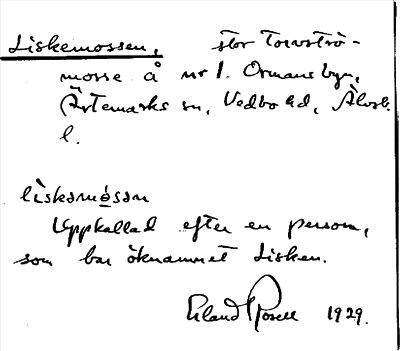 Liskemossen, stor torvströ-
mosse å nr 1. Ormansbyn,
Ärtemarks sn, Vedbo hd, Älvsb.
l.
lìskamósan
Uppkallad efter en person,
som bar öknamnet Lisken.
Erland Rosell 1929.